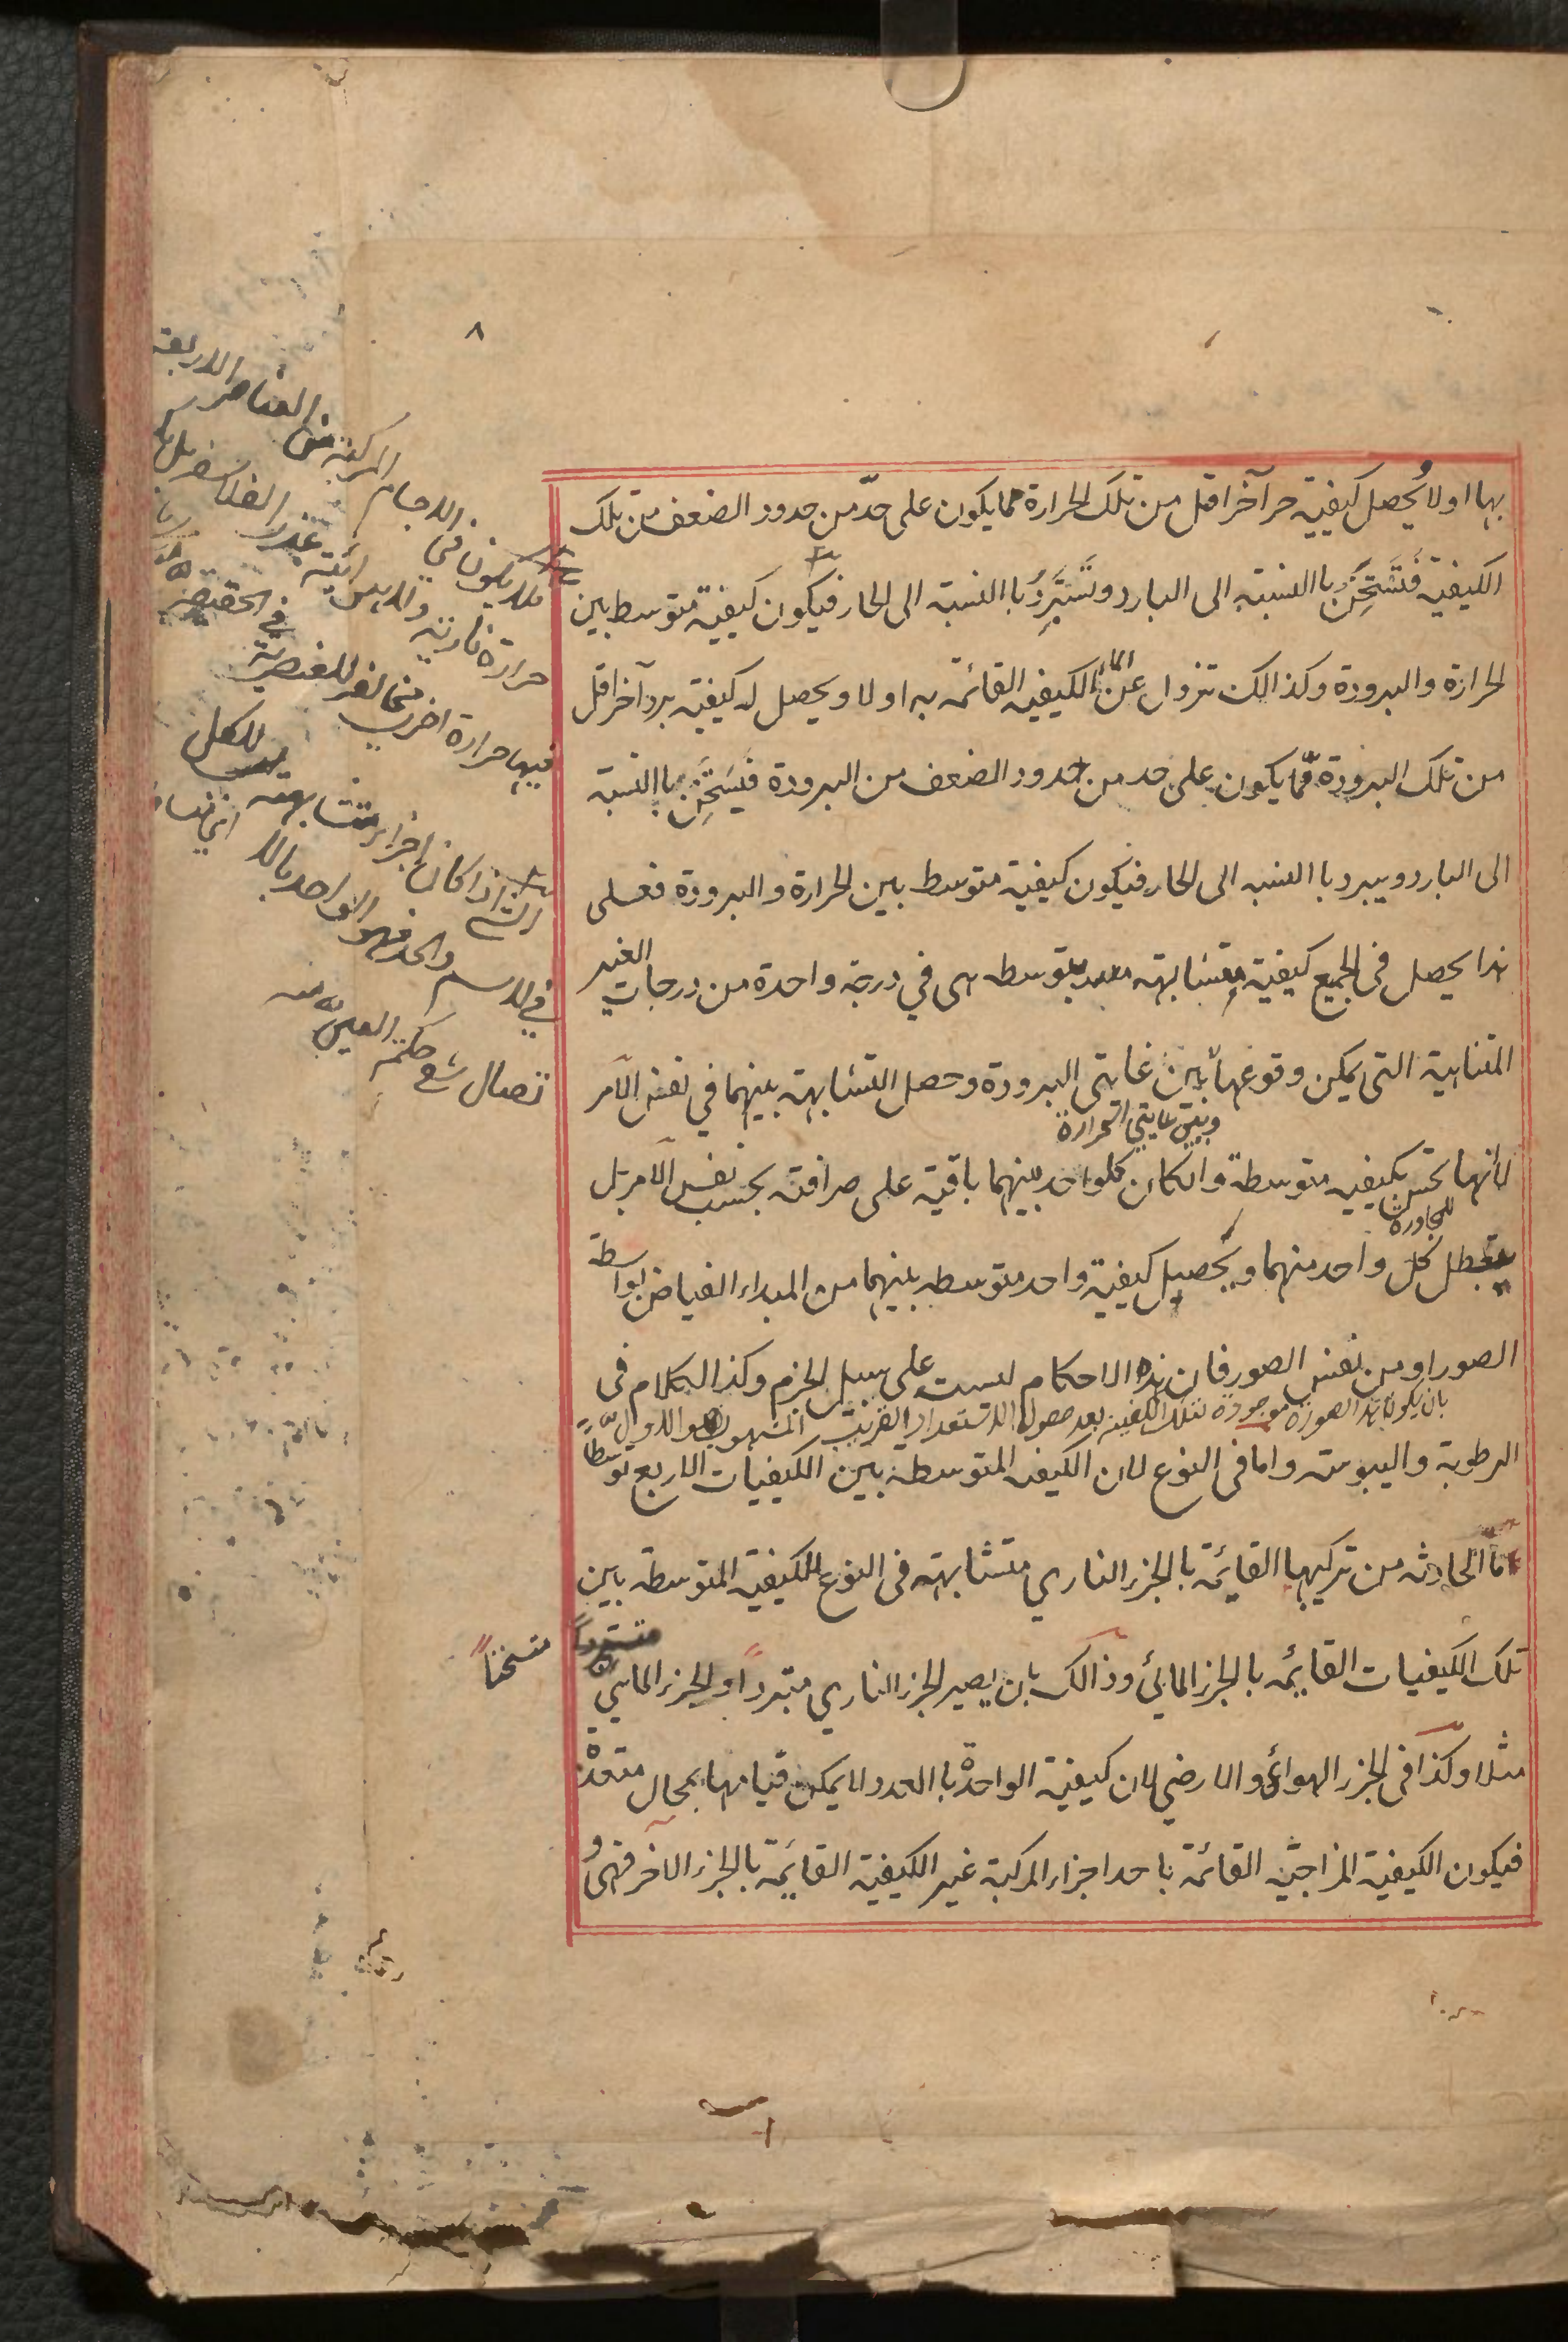 ٨
بها اولا ويُحصل كيفيية حر آخر اقل من تلك الحرارة مما يكون على حدّ من حدود الضعف من تلك
الكيفية فَتَسَخَّنُ باالنسبة الى البارد وتَتَبَرَّدُ باالنسبة الى الحار فيكون كيفية متوسط بين
الحرارة والبرودة وكذالك تزول عن الماء الكيفيه القائمة به اولا ويحصل له كيفية برد آخر اقل
من تلك البرودة ممّا يكون على حد من حدود الضعف من البرودة فيَسَخَّن باالنسبة
الى البارد ويبرد باالنسبه الى الحار فيكون كيفية متوسط بين الحرارة والبرودة فعلى
هذا يحصل فى الجميع كيفية متشابهة متوسطه هى في درجة واحدة من درجات الغير
المتناهية التى يمكن وقوعها بين غايتى البرودة وحصل التشابهة بينهما في نفس الأمر
وبين غايتي الحرارة
لأنها تحس بكيفيه متوسطة وانكان كلواحد بينهما باقية على صرافته بحسب نفس الآمر بل
للمجاورة
يتعطل كل واحد منهما ويحصل كيفية واحد متوسطه بينهما من المبداء الفياض بواسطة
الصور او من نفس الصور فان هذه الاحكام ليست على سبيل الجزم وكذا الكلام فى
بان يكون هذا الصورة موجودة لتلك الكيفية بعد حصول الاستعداد القريب المشهور هو الاول
الرطوبة واليبوسه واما فى النوع لان الكيفيه المتوسطة بين الكيفيات الاربع توسّطاً
ما الحادثه من تركيبها القائمة بالجزء الناري متشابهة فى النوع للكيفية المتوسطة بين
تلك الكيفيات القايمه بالجزء المائى وذالك بان يصير الجزء الناري متبرداً والجزء المايي
متسخناً
مثلا وكذا فى الجزء الهوائى والارضي لان كيفية الواحدة باالعدد لا يمكن قيامها بمحال متعدة
فيكون الكيفية المزاجيّة القائمة باحد اجزاء المركبة غير الكيفية القايمة بالجزء الآخر فهىُ
فلا يكون في الاجسام المركبة من العناصر الاربعة
حرارة نارية ولا يبس ارضية عند الفلاسفة بل
فيها حرارة اخرى مخالفه للعنصرية في الحقيقة
الشئ اذا كان اجزاء متشابهه للكل
في الاسم والحد فهو الواحد بالا
تصال شرح حكمة العين منه